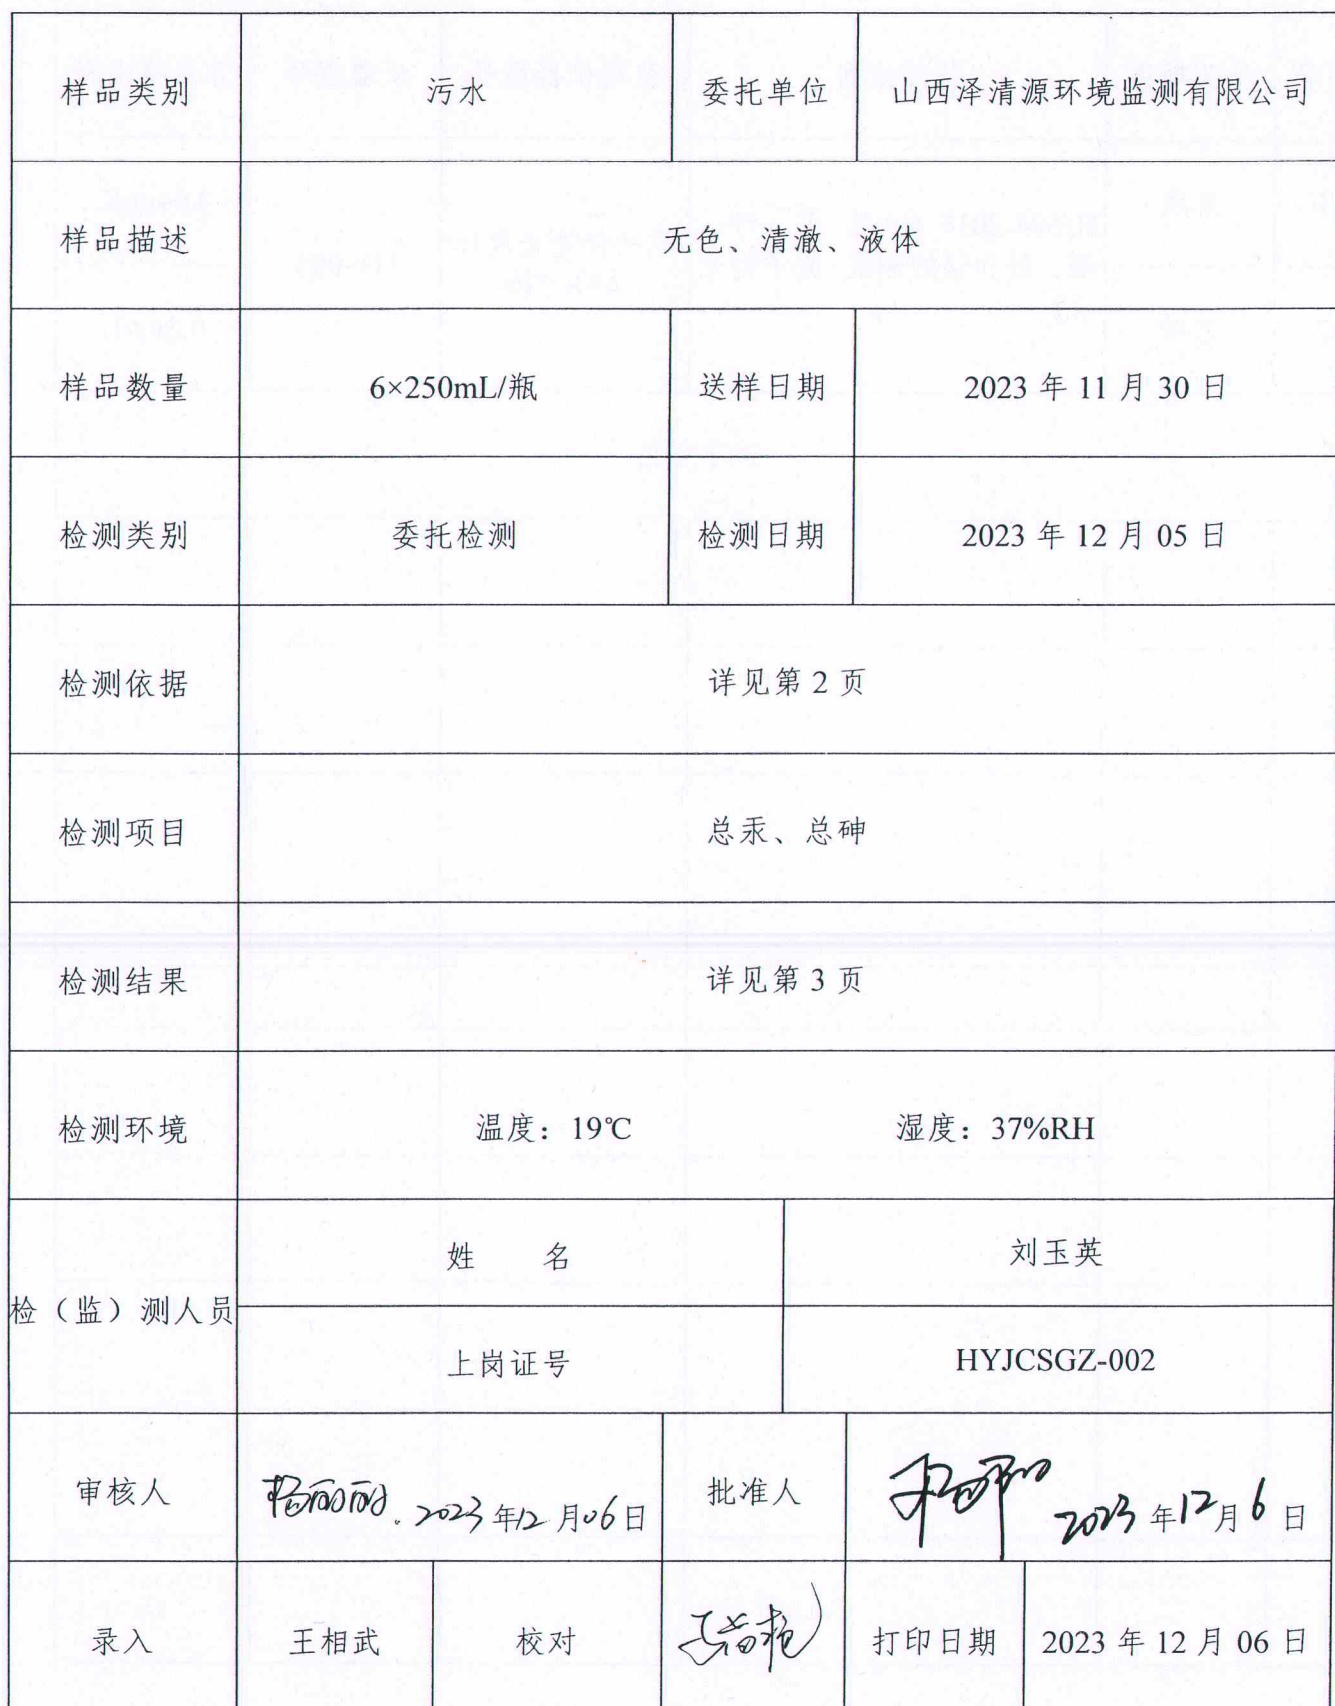 样品类别 污水 委托单位 山西泽清源环境监测有限公司
样品描述 无色、清澈、液体
样品数量 6×250mL/瓶 送样日期 2023 年 11 月 30 日
检测类别 委托检测 检测日期 2023 年 12 月 05 日
检测依据 详见第 2 页
检测项目 总汞、总砷
检测结果 详见第 3 页
检测环境 温度：19℃ 湿度：37%RH
姓 名 刘玉英
检（监）测人员
上岗证号 HYJCSGZ-002
审核人 2023 年 12 月 06 日 批准人 2023 年 12 月 6 日
录入 王相武 校对 打印日期 2023 年 12 月 06 日